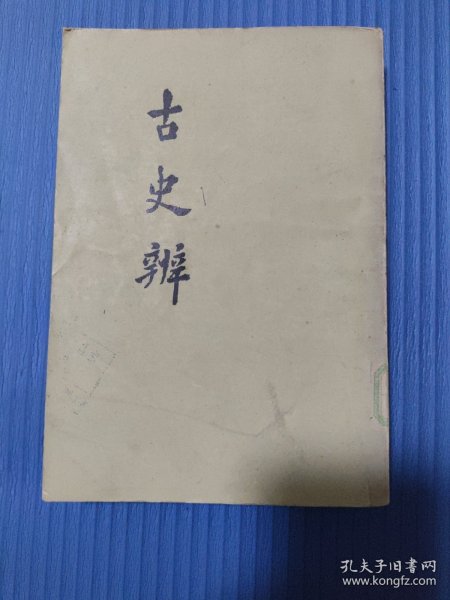 古史辨
孔夫子旧书网
www.kongfz.com